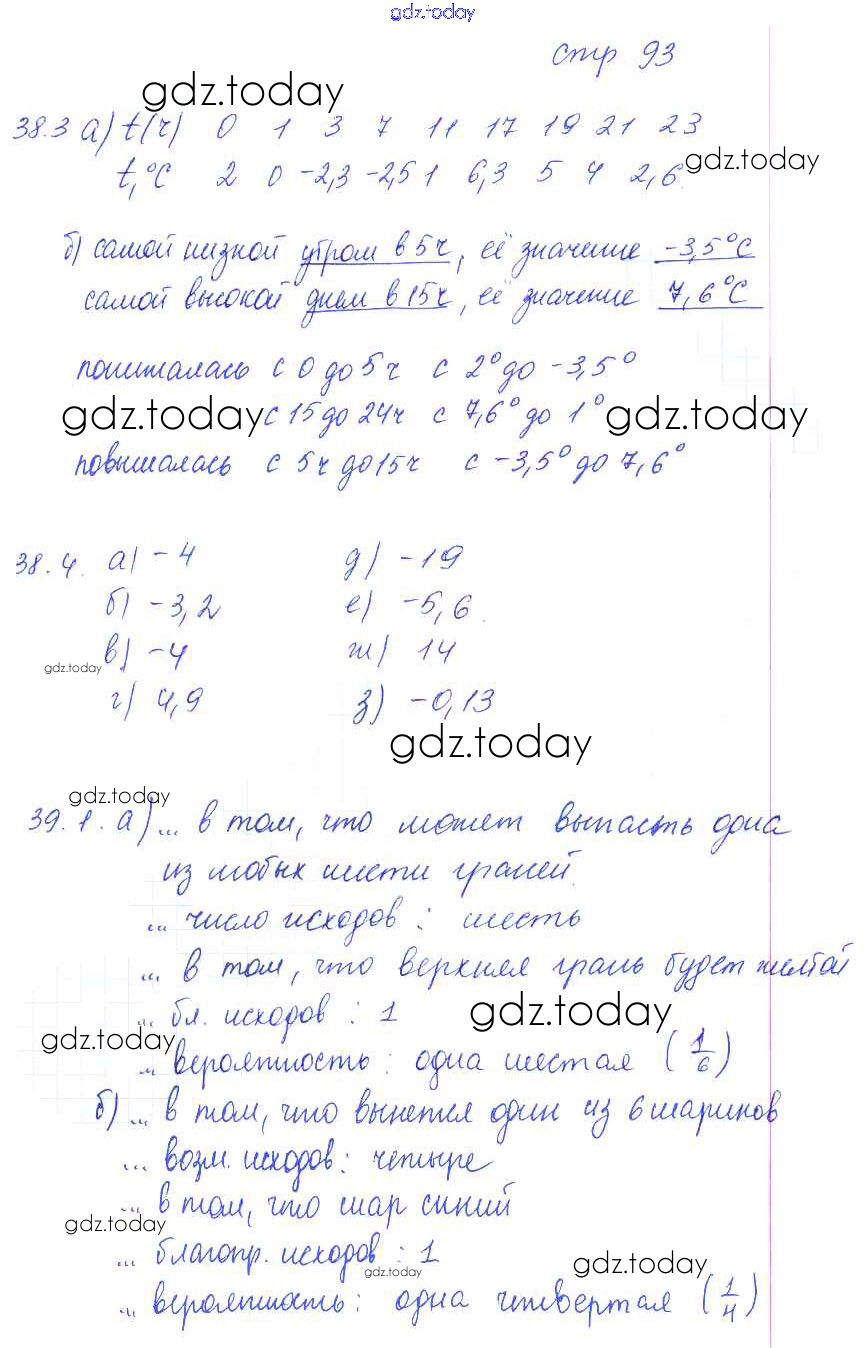 gdz.today
стр 93
gdz.today
38.3 а) t(ч) 0 1 3 7 11 17 19 21 23
gdz.today
t,°C 2 0 -2,3 -2,5 1 6,3 5 4 2,6.
б) самой низкой утром в 5ч, её значение -3,5°C
самой высокой днем в 15ч, её значение 7,6°C
понижалась с 0 до 5ч с 2° до -3,5°
gdz.today с 15 до 24ч с 7,6° до 1° gdz.today
повышалась с 5ч до 15ч с -3,5° до 7,6°
38.4. а) -4 д) -19
б) -3,2 е) -5,6.
в) -4 ж) 14
gdz.today
г) 4,9 з) -0,13
gdz.today
gdz.today
39.1. а) ... в том, что может выпасть одна
из любых шести граней.
... число исходов: шесть
... в том, что верхняя грань будет желтой
... бл. исходов: 1
gdz.today
gdz.today
... вероятность: одна шестая (1/6)
б) ... в том, что вынется один из 6 шариков
... возм. исходов: четыре
... в том, что шар синий
gdz.today
... благопр. исходов: 1
gdz.today
gdz.today
... вероятность: одна четвертая (1/4)